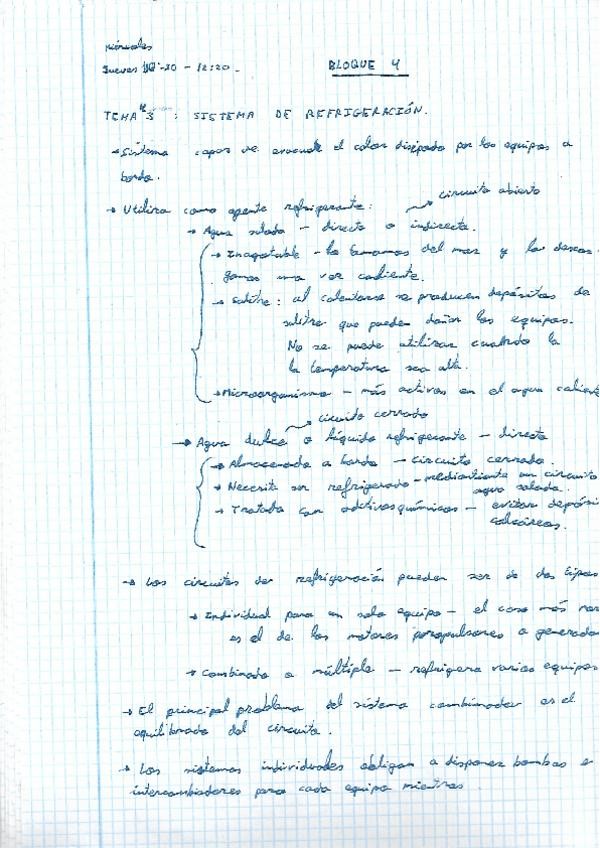 Miércoles
Jueves -30 - 12:20.
BLOQUE 4
TEMA 3 : SISTEMA DE REFRIGERACIÓN.
→ Sistema capaz de evacuar el calor disipado por los equipos a
bordo.
→ Utiliza como agente refrigerante:
circuito abierto
→ Agua salada - directa o indirecta.
→ Inagotable - la tomamos del mar y la descar
gamos una vez caliente.
→ Salitre: al calentarse se producen depósitos de
salitre que pueden dañar los equipos.
No se puede utilizar cuando la
la temperatura sea alta.
→ Microorganismo - más activos en el agua caliente
circuito cerrado
→ Agua dulce o líquido refrigerante - directa
→ Almacenada a bordo - circuito cerrado.
→ Necesita ser refrigerado - un circuito
agua salada.
→ Tratada con aditivos químicos - evitar depósi
calcáreos.
→ Los circuitos de refrigeración pueden ser de dos tipos
→ Individual para un solo equipo - el caso más
es el de los motores propulsores o generado
→ Combinado o múltiple - refrigera varios equipos
→ El principal problema del sistema combinado es el
equilibrado del circuito.
→ Los sistemas individuales obligan a disponer bombas e
intercambiadores para cada equipo mientras